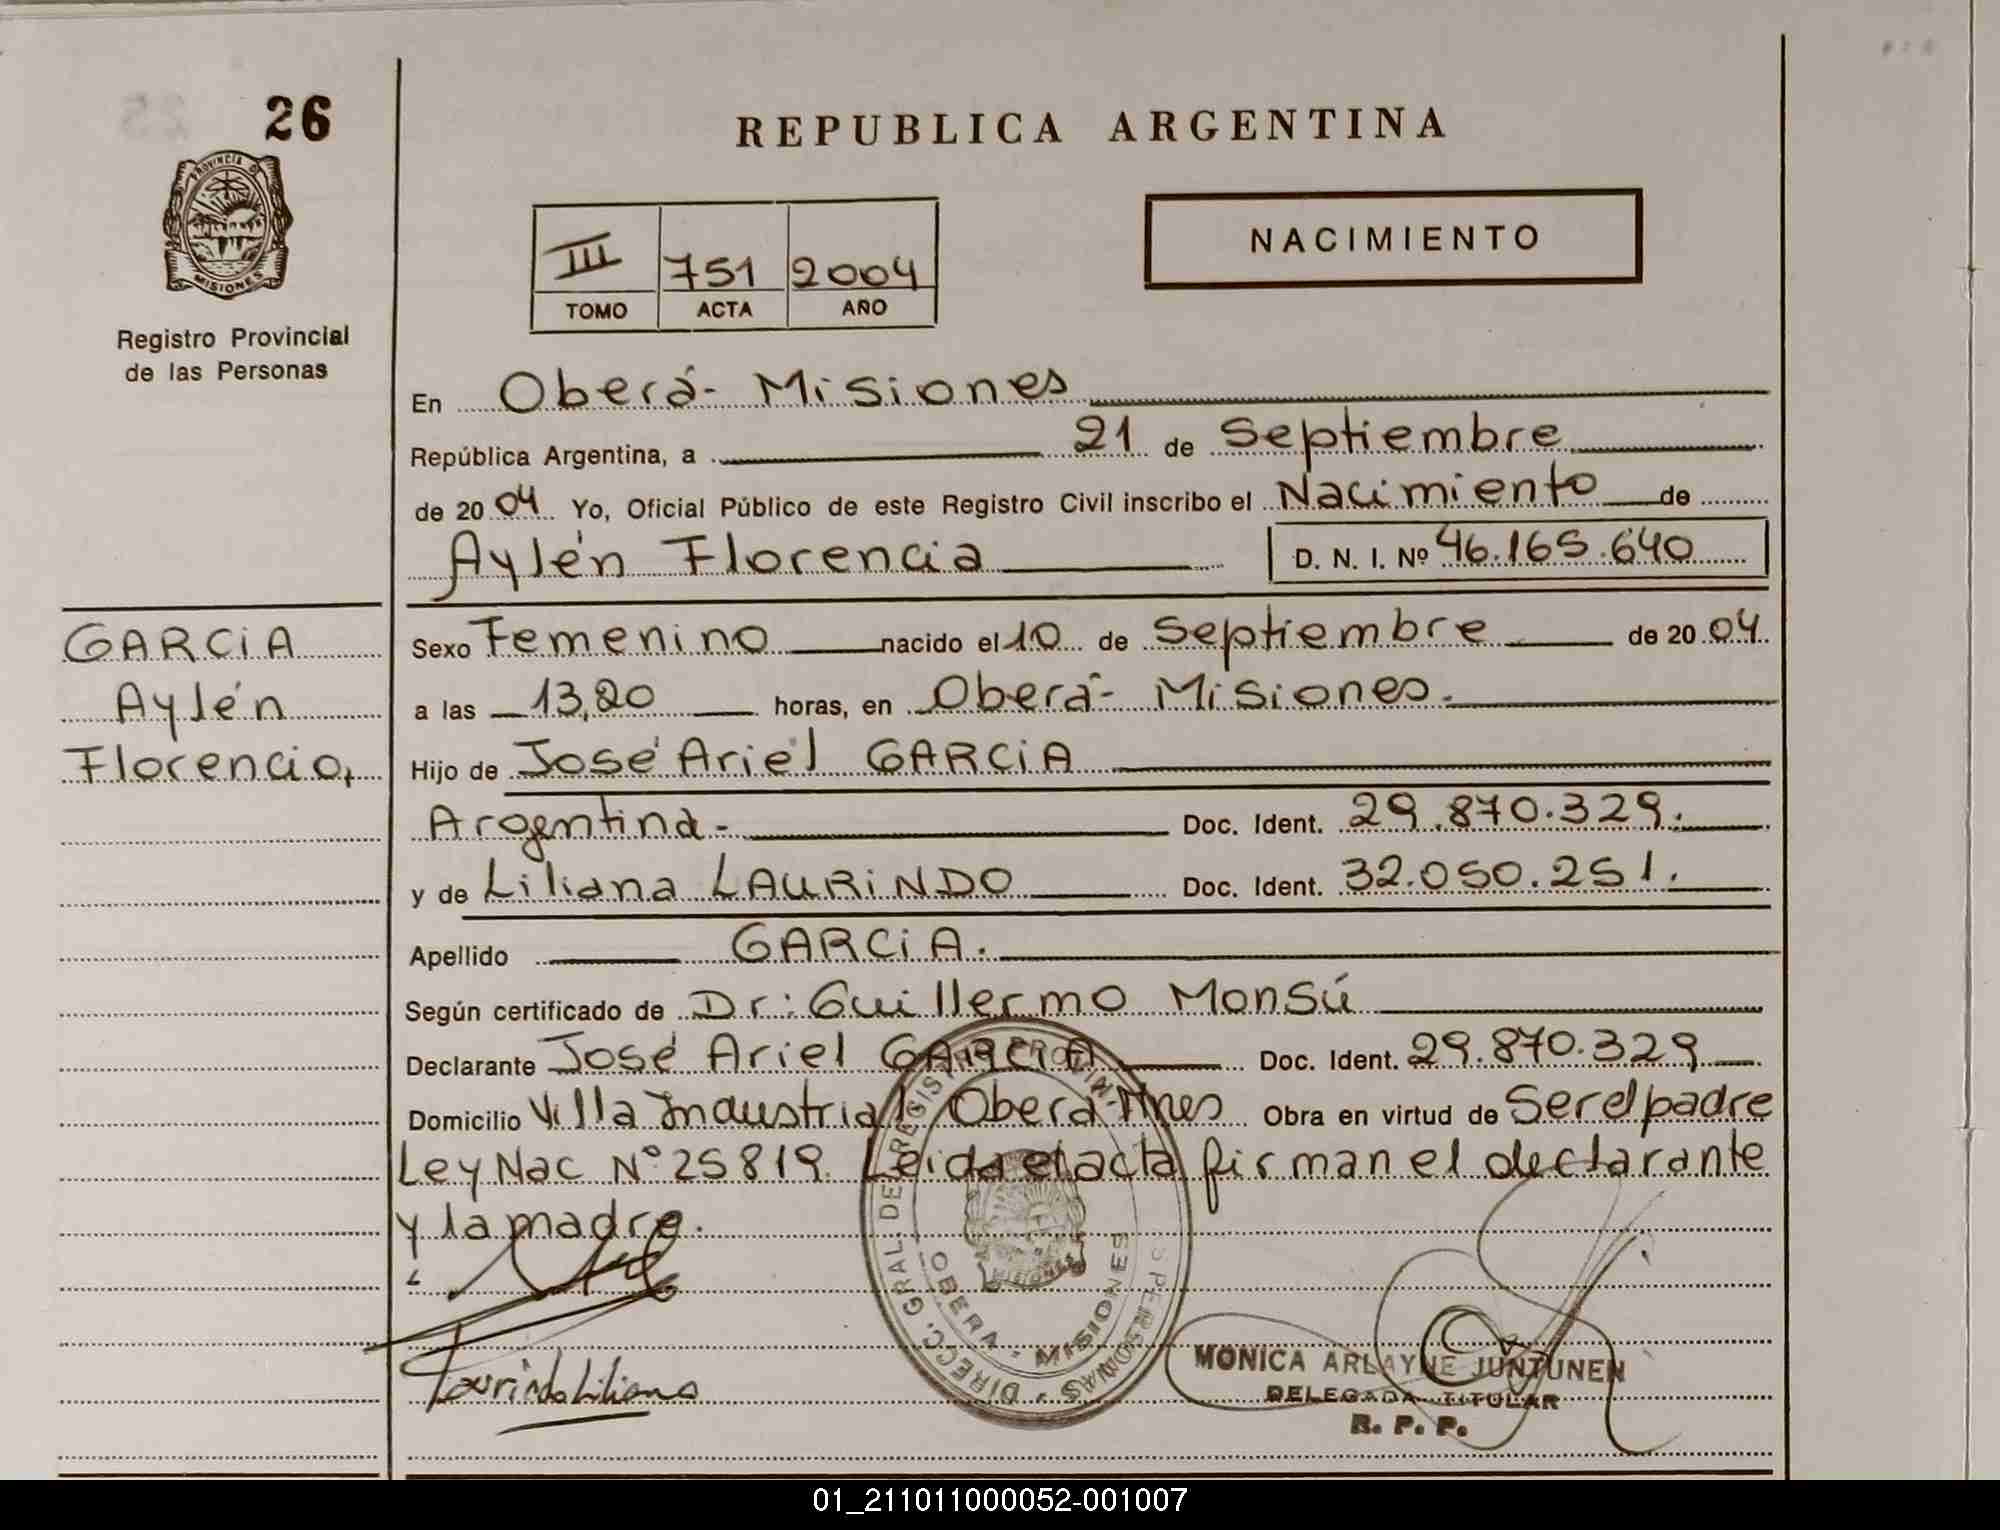 26
REPUBLICA ARGENTINA
PROVINCIA D
MISIONES
Registro Provincial
de las Personas
III 751 2004
TOMO ACTA AÑO
NACIMIENTO
En Oberá- Misiones
República Argentina, a 21 de Septiembre
de 2004 Yo, Oficial Público de este Registro Civil inscribo el Nacimiento de
Aylén Florencia D. N. I. Nº 46.165.640
GARCiA
Aylén
Florencia,
Sexo Femenino nacido el 10 de Septiembre de 2004.
a las 13,20 horas, en Oberá- Misiones.
Hijo de José Ariel GARCiA
Argentina- Doc. Ident. 29.870.329.
y de Liliana LAURiNDO Doc. Ident. 32.050.251.
Apellido GARCiA.
Según certificado de Dr: Guillermo Monsú
Declarante José Ariel GARCiA Doc. Ident. 29.870.329
Domicilio Villa Industrial Oberá Mnes Obra en virtud de Ser el padre
Ley Nac Nº 25819. Leida el acta firman el declarante
y la madre.
Laurindo Liliana
DIRECC. GRAL. DEL REGISTRO PROVIN. PERSONAS
OBERA - MISIONES
MONICA ARLAYNE JUNTUNEN
DELEGADA TITULAR
R. P. P.
01_211011000052-001007